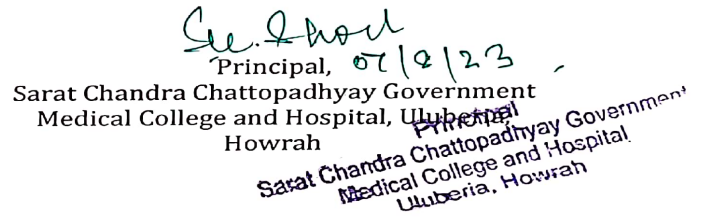 Principal, 07/8/23
Sarat Chandra Chattopadhyay Government
Medical College and Hospital, Uluberia,
Howrah
Principal
Sarat Chandra Chattopadhyay Government
Medical College and Hospital
Uluberia, Howrah